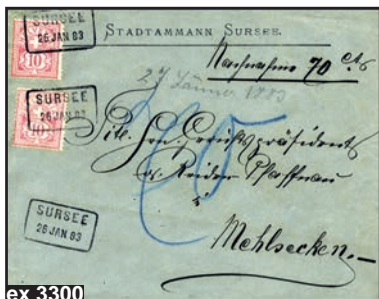 SURSEE
26 JAN 83
STADTAMMANN SURSEE.
Nachnahme 70 Cts
10
27 Jänner 1883
SURSEE
26 JAN 83
10
Tit. Hrn. Gerichtspräsident
v. Reiden Pfaffnau
70
SURSEE
26 JAN 83
Mehlsecken.-
ex 3300